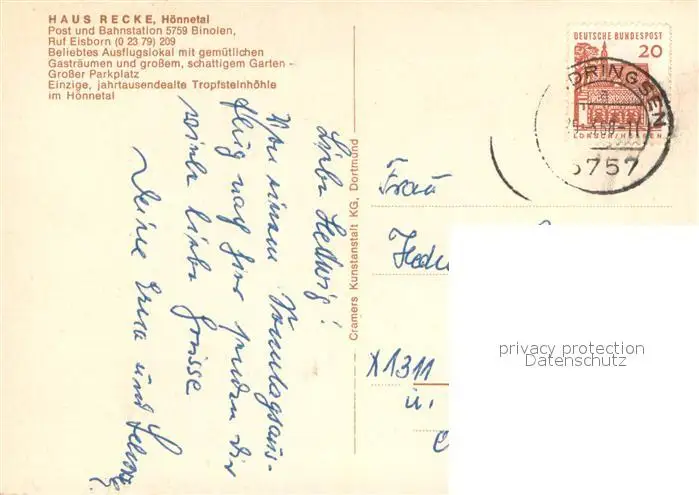 HAUS RECKE, Hönnetal
Post und Bahnstation 5759 Binolen,
Ruf Eisborn (0 23 79) 209
Beliebtes Ausflugslokal mit gemütlichen
Gasträumen und großem, schattigem Garten -
Großer Parkplatz
Einzige, jahrtausendealte Tropfsteinhöhle
im Hönnetal
Liebe Hedwig!
Von einem Sonntagsaus-
flug nach hier senden dir
viele liebe Grüsse
Deine Erna und
Cramers Kunstanstalt KG, Dortmund
DEUTSCHE BUNDESPOST
20
LORSCH/HESSEN
DRINGSEN
5757
Frau
X 1311
u.
privacy protection
Datenschutz